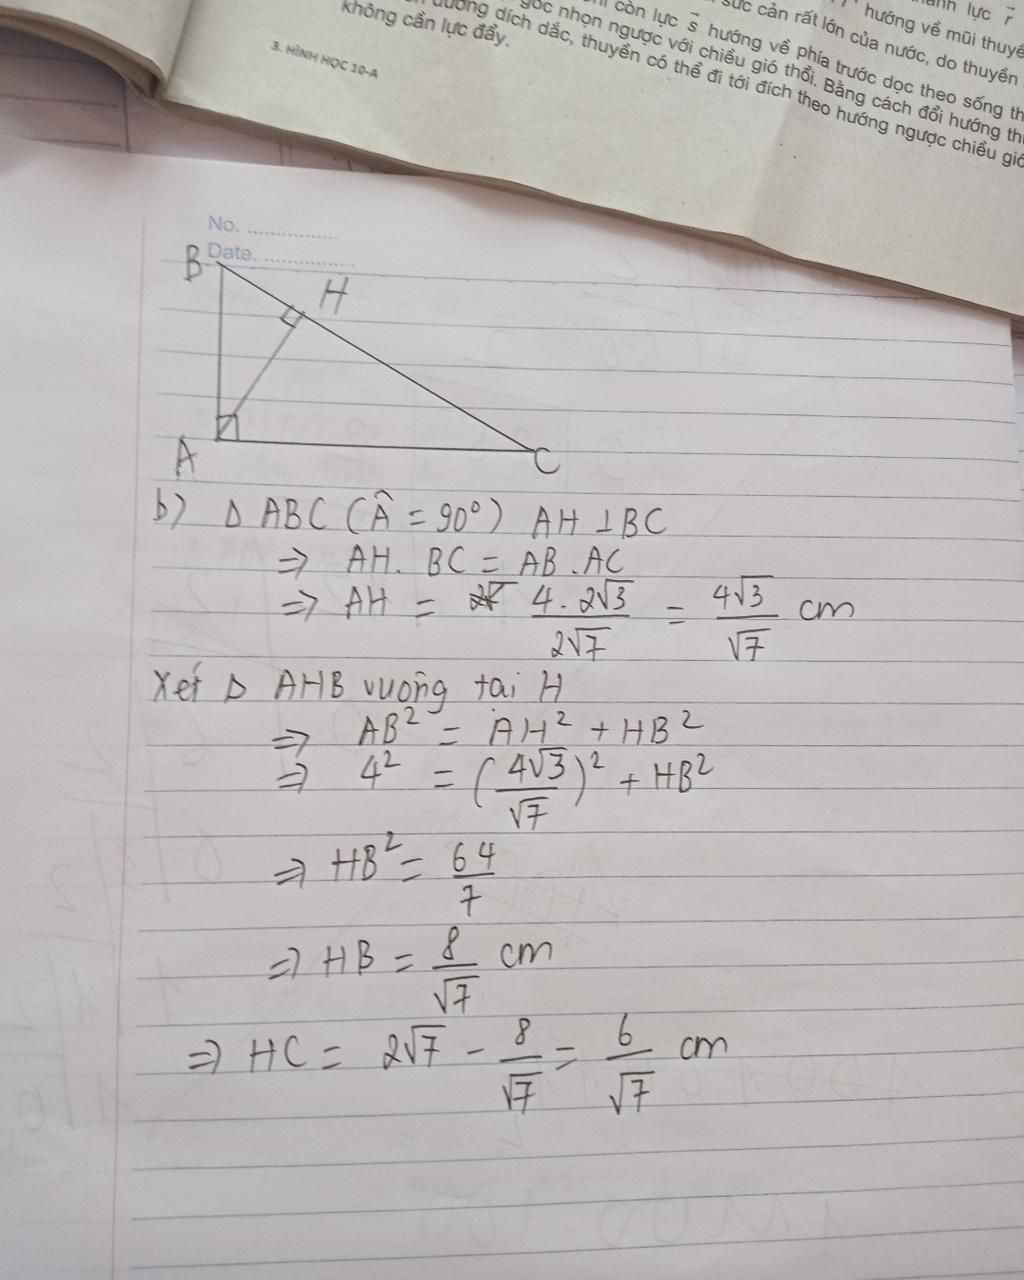 hướng về mũi thuyề
sức cản rất lớn của nước, do thuyền
còn lực s⃗ hướng về phía trước dọc theo sống th
góc nhọn ngược với chiều gió thổi. Bằng cách đổi hướng th
đường dích dắc, thuyền có thể đi tới đích theo hướng ngược chiều gió
không cần lực đẩy.
3. HÌNH HỌC 10-A
No. ................
Date. ................
B
H
A
C
b) Δ ABC (Â = 90°) AH ⊥ BC
⇒ AH. BC = AB . AC
⇒ AH = 4 . 2√3 / 2√7 = 4√3 / √7 cm
Xét Δ AHB vuông tại H
⇒ AB² = AH² + HB²
⇒ 4² = (4√3 / √7)² + HB²
⇒ HB² = 64 / 7
⇒ HB = 8 / √7 cm
⇒ HC = 2√7 - 8 / √7 = 6 / √7 cm